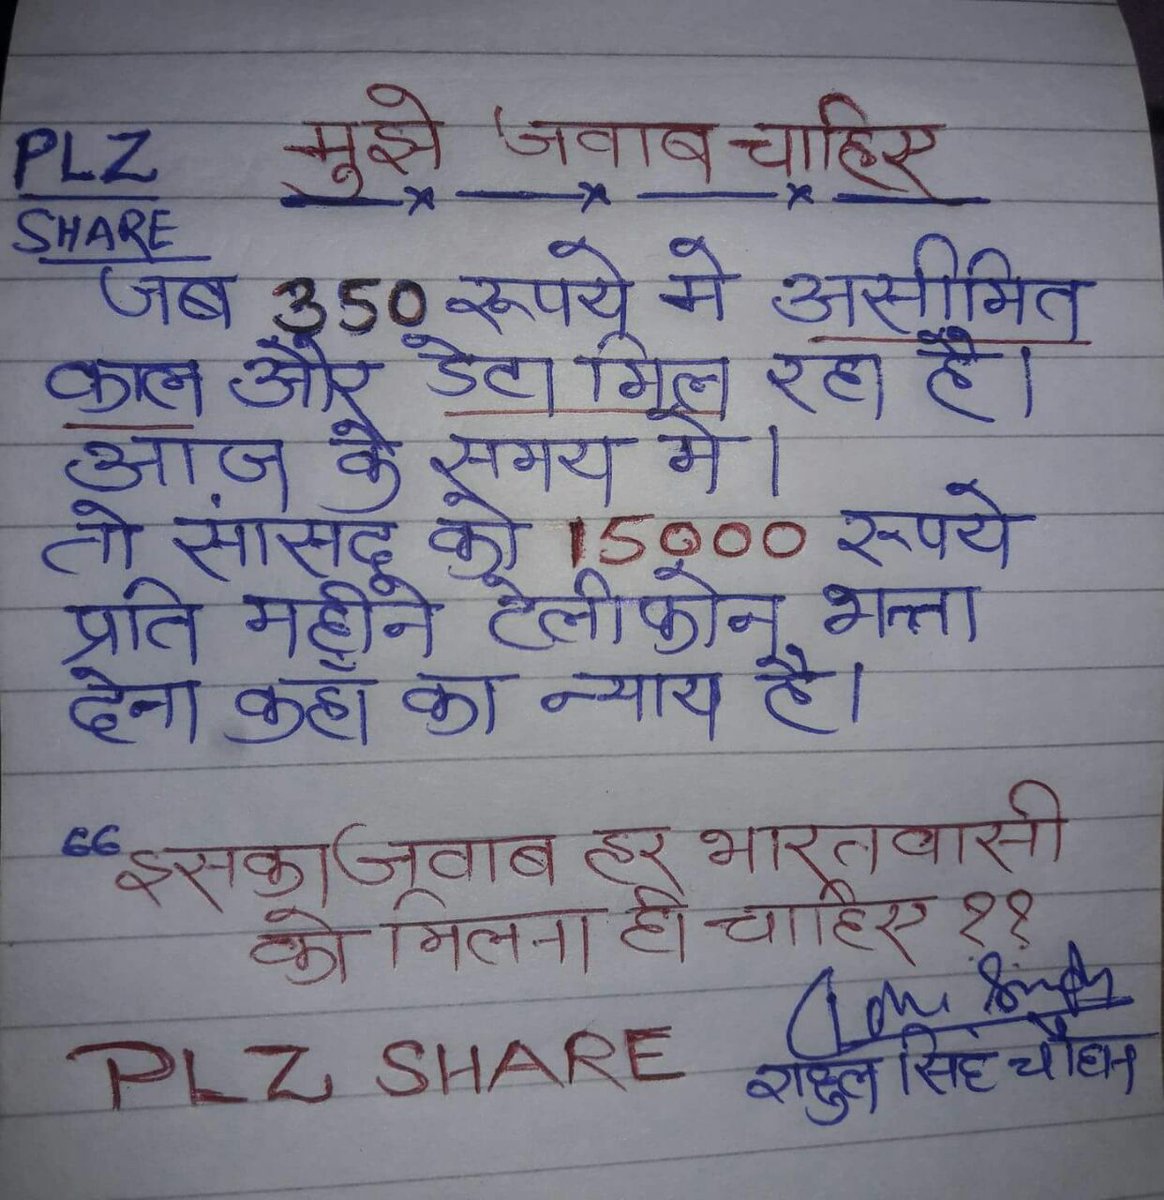 PLZ
SHARE
मुझे जवाब चाहिए
जब 350 रूपये मे असीमित
काल और डेटा मिल रहा है।
आज के समय मे।
तो सांसद को 15000 रूपये
प्रति महीने टेलीफोन भत्ता
देना कहाँ का न्याय है।
“इसका जवाब हर भारतवासी
को मिलना ही चाहिए ??
PLZ SHARE
राहुल सिंह चौहान